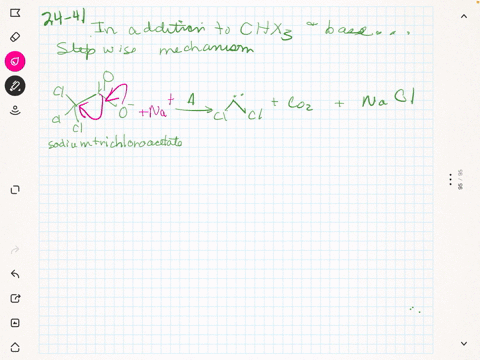 24-41
In addition to CHX3 - base...
Stepwise mechanism
Cl O
Cl O⁻ + Na⁺ Δ Cl Cl + CO2 + NaCl
Cl
sodium trichloroacetate
95 / 95